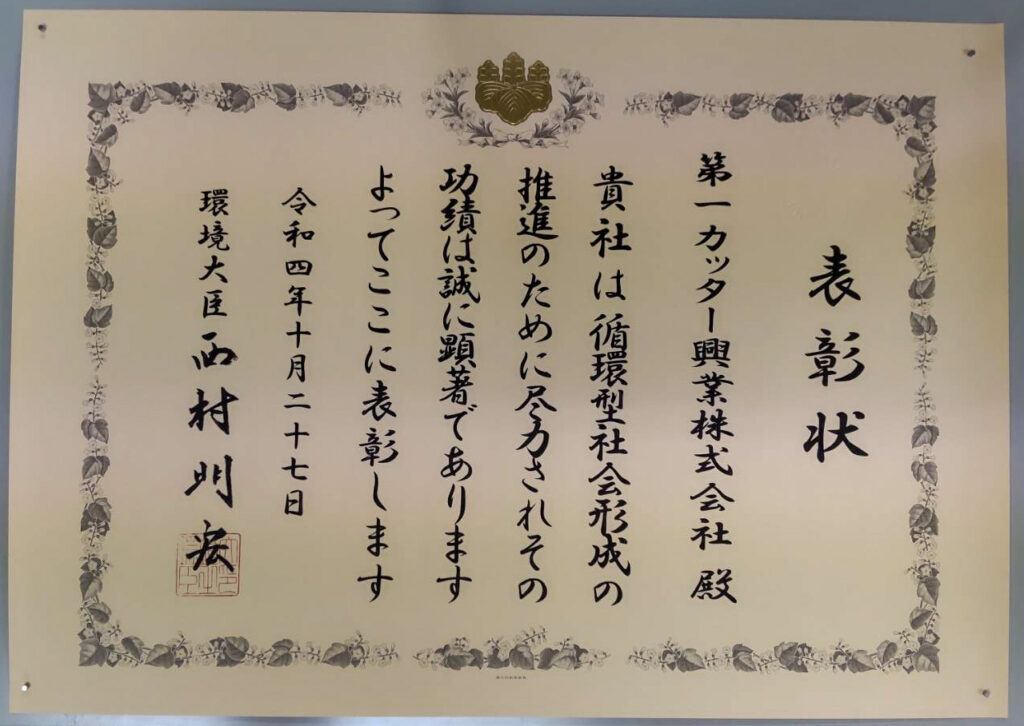 表彰状
第一カッター興業株式会社 殿
貴社は循環型社会形成の
推進のために尽力されその
功績は誠に顕著であります
よってここに表彰します
令和四年十月二十七日
環境大臣 西村明宏